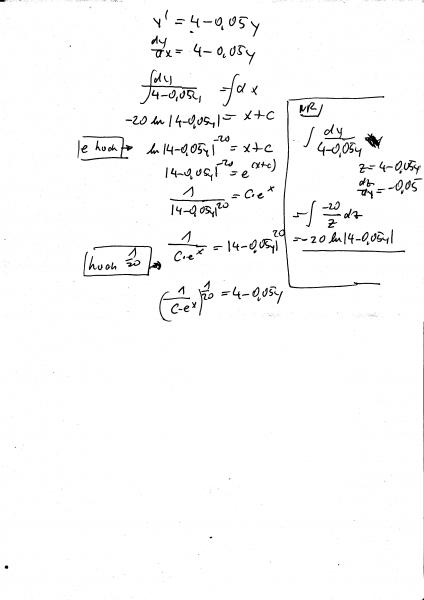 y' = 4-0,05y
dy/dx = 4-0,05y
∫dy/4-0,05y = ∫dx
-20 ln|4-0,05y| = x+c
|e hoch → ln|4-0,05y|^-20 = x+c
|4-0,05y|^-20 = e^(x+c)
1/|4-0,05y|^20 = C·e^x
1/C·e^x = |4-0,05y|^20
hoch 1/20 →
(1/C·e^x)^1/20 = 4-0,05y
NR/
∫ dy/4-0,05y
z = 4-0,05y
dz/dy = -0,05
= ∫ -20/z dz
= -20 ln|4-0,05y|